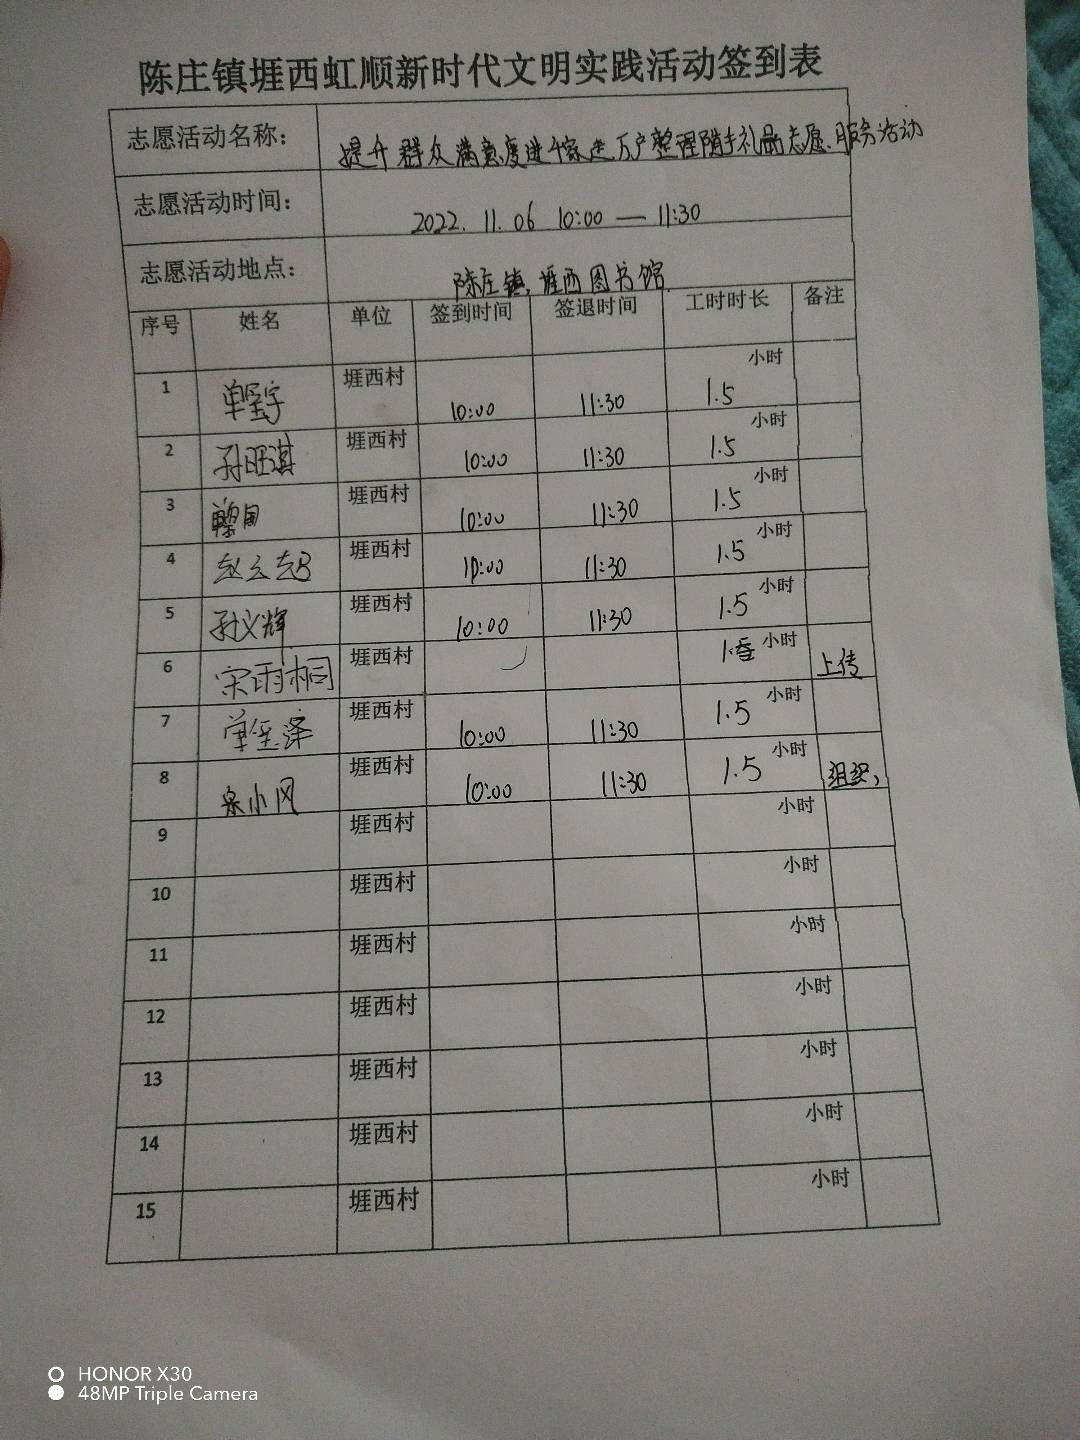 陈庄镇堐西虹顺新时代文明实践活动签到表
志愿活动名称： 提升群众满意度进千家走万户整理随手礼品志愿服务活动
志愿活动时间： 2022. 11. 06 10:00 — 11:30
志愿活动地点： 陈庄镇, 堐西图书馆
序号 姓名 单位 签到时间 签退时间 工时时长 备注
1 堐西村 10:00 11:30 1.5 小时
2 孙旺淇 堐西村 10:00 11:30 1.5 小时
3 堐西村 10:00 11:30 1.5 小时
4 堐西村 10:00 11:30 1.5 小时
5 孙义辉 堐西村 10:00 11:30 1.5 小时
6 宋雨桐 堐西村 小时 上传
7 堐西村 10:00 11:30 1.5 小时
8 小风 堐西村 10:00 11:30 1.5 小时 组织,
9 堐西村 小时
10 堐西村 小时
11 堐西村 小时
12 堐西村 小时
13 堐西村 小时
14 堐西村 小时
15 堐西村 小时
HONOR X30
48MP Triple Camera